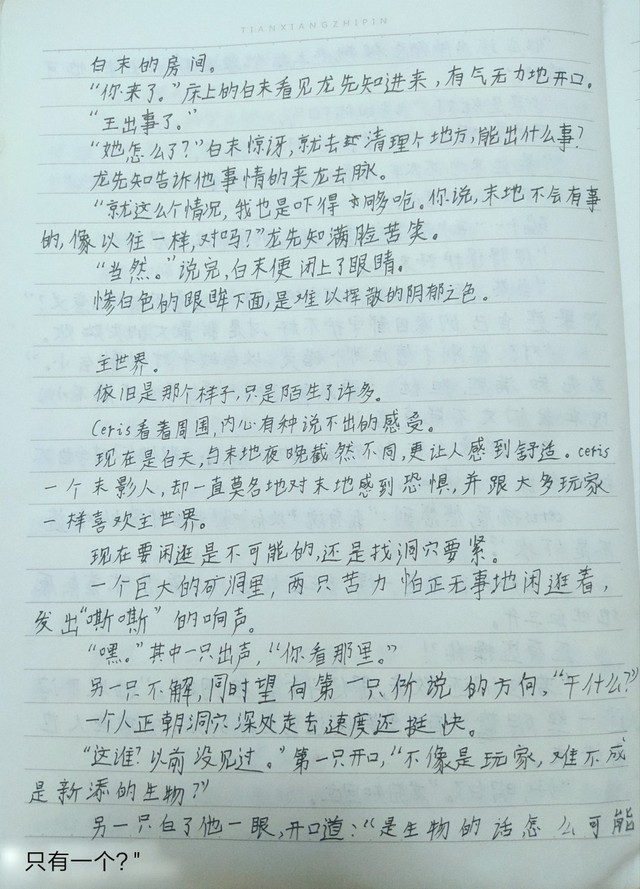 TIANXIANGZHIPIN
白末的房间。
“你来了。”床上的白末看见龙先知进来，有气无力地开口。
“王出事了。”
“她怎么了？”白末惊讶，就去清理个地方，能出什么事？
龙先知告诉他事情的来龙去脉。
“就这么个情况，我也是吓得够呛。你说，末地不会有事
的，像以往一样，对吗？”龙先知满脸苦笑。
“当然。”说完，白末便闭上了眼睛。
惨白色的眼眸下面，是难以挥散的阴郁之色。
主世界。
依旧是那个样子，只是陌生了许多。
Ceris看着周围，内心有种说不出的感受。
现在是白天，与末地夜晚截然不同，更让人感到舒适。ceris
一个末影人，却一直莫名地对末地感到恐惧，并跟大多玩家
一样喜欢主世界。
现在要闲逛是不可能的，还是找洞穴要紧。
一个巨大的矿洞里，两只苦力怕正无事地闲逛着，
发出“嘶嘶”的响声。
“嘿。”其中一只出声，“你看那里。”
另一只不解，同时望向第一只所说的方向，“干什么？”
一个人正朝洞穴深处走去速度还挺快。
“这谁？以前没见过。”第一只开口，“不像是玩家，难不成
是新添的生物？”
另一只白了他一眼，开口道：“是生物的话怎么可能
只有一个？"